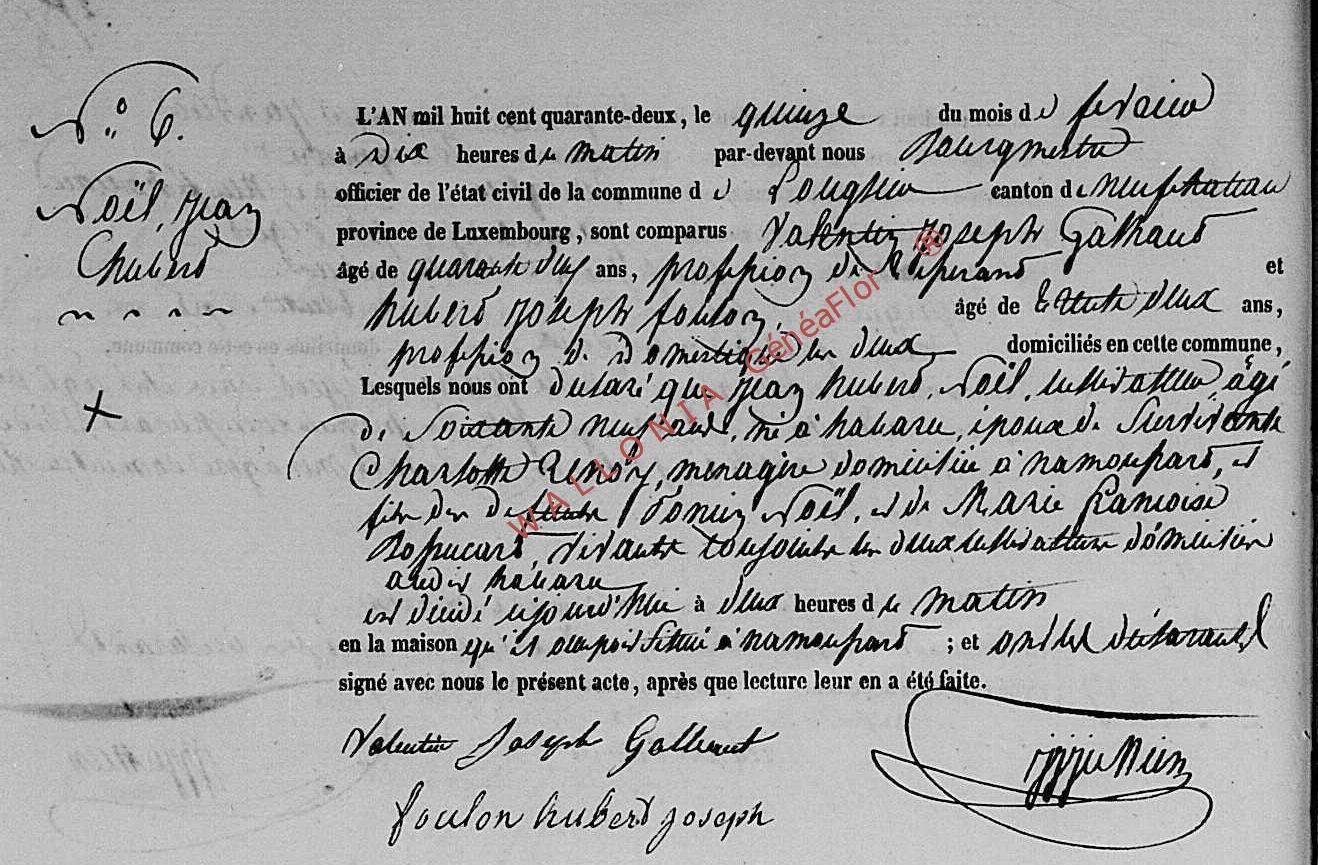 N° 6.
Noël, Jean
hubert
L'AN mil huit cent quarante-deux, le quinze du mois de fevrier
à dix heures du matin par-devant nous Bourgmestre
officier de l'état civil de la commune de Longlier canton de Neufchateau
province de Luxembourg, sont comparus Valentin Joseph Galhaut
âgé de quarante deux ans, profession de et
hubert Joseph foulon, âgé de trente deux ans,
profession de Domestique les deux domiciliés en cette commune,
Lesquels nous ont declaré que Jean hubert Noël, cultivateur âgé
de Soixante neuf ans, né à habaru, époux de Survivante
Charlotte, menagère domiciliée à namoussart, et
fils des defunts Noël, et de Marie francoise
vivants conjoints les deux cultivateurs domiciliés
audit habaru
est décédé cejourd'hui à deux heures du matin
en la maison qu'il occupoit située à namoussart ; et ont les déclarants
signé avec nous le présent acte, après que lecture leur en a été faite.
Valentin Joseph Galhaut
foulon hubert joseph
WALLONIA GénéaFlor ®